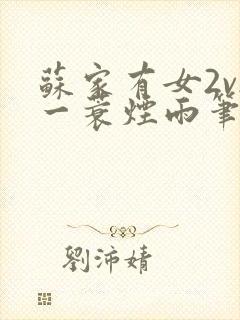 蘇家有女2v
一蓑煙雨筆
劉沛婧